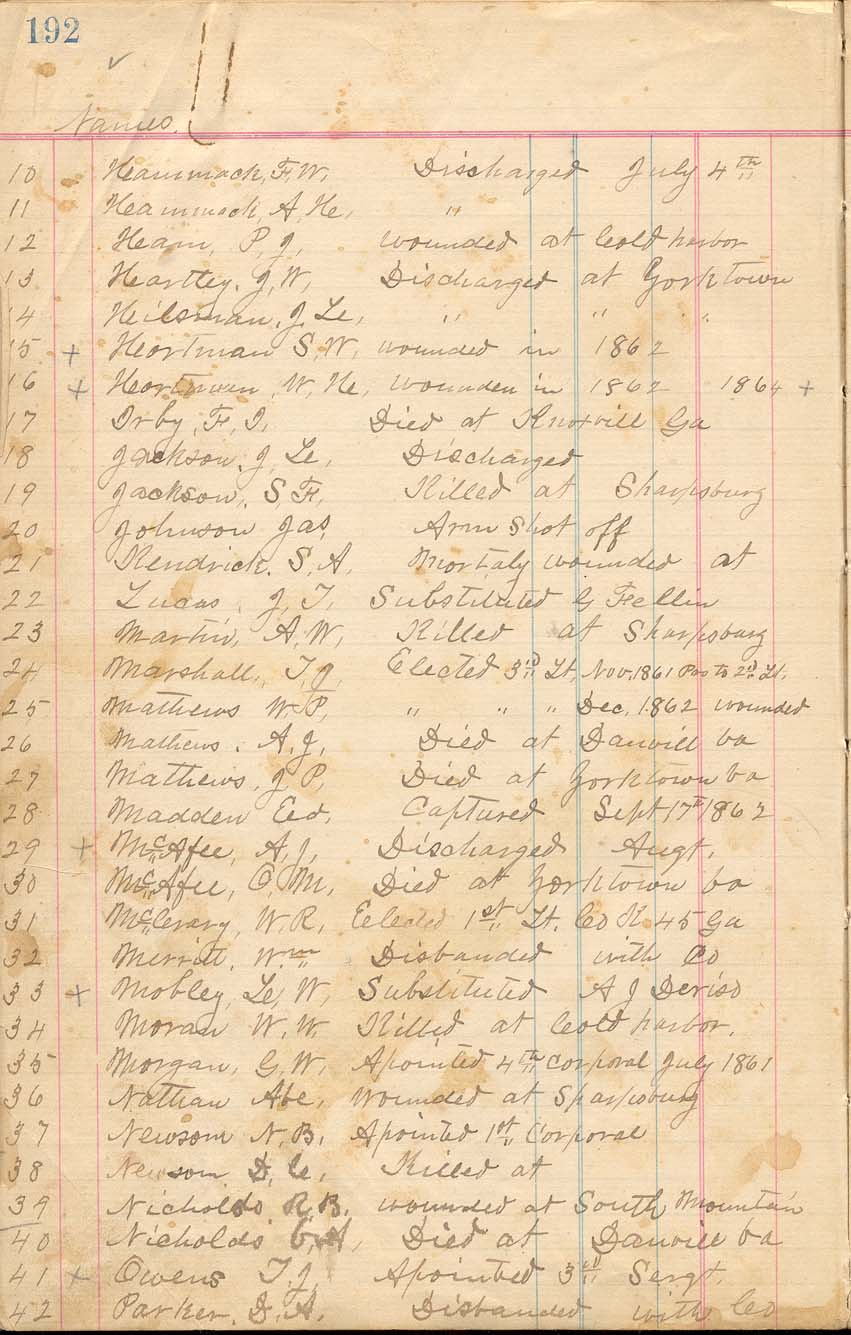 192
Names.
10 Hammack, F, W, Discharged July 4th
11 Hammock, A, H, "
12 Ham, P, J, wounded at Cold harbor
13 Hartley, J, W, Discharged at Yorktown
14 Hilsman, J, C, " " "
15 + Hortman S, W, wounded in 1862
16 + Hortman, W, H, wounden in 1862 1864 +
17 Irby, F, I, Died at Knoxvill Ga
18 Jackson, J, C, Discharged
19 Jackson, S, F, Killed at Sharpsburg
20 Johnson Jas, Arm Shot off
21 Kendrick, S, A, Mortaly wounded at
22 Lucas, J, T, Substituted G Fellin
23 Martin, A, W, Killed at Sharpsburg
24 Marshall, T, J, Elected 3rd Lt, Nov, 1861 Pro to 2nd Lt,
25 Mathews W P, " " " Dec, 1862 wounded
26 Mathews, A, J, Died at Danvill va
27 Mathews, J P, Died at Yorktown va
28 Madden Ed, Captured Sept 17th 1862
29 + McAfee, A, J, Discharged Augt,
30 McAfee, C, M, Died at Yorktown va
31 McCrary, W, R, Elected 1st Lt, Co K 45 Ga
32 Merritt, Wm Disbanded with Co
33 + Mobley, L, W, Substituted A J Deriso
34 Moran W, W, Killed at Cold harbor,
35 Morgan, G, W, Apointed 4th corporal July 1861
36 Nathan Abe, Wounded at Sharpsburg
37 Newsom N, B, Apointed 1st Corporal
38 Newsom D, C, Killed at
39 Nicholds R, B, wounded at South Mountain
40 Nicholds Died at Danvill va
41 + Owens T, J, Apointed 3rd Sergt,
42 Parker, D, A, Disbanded with Co